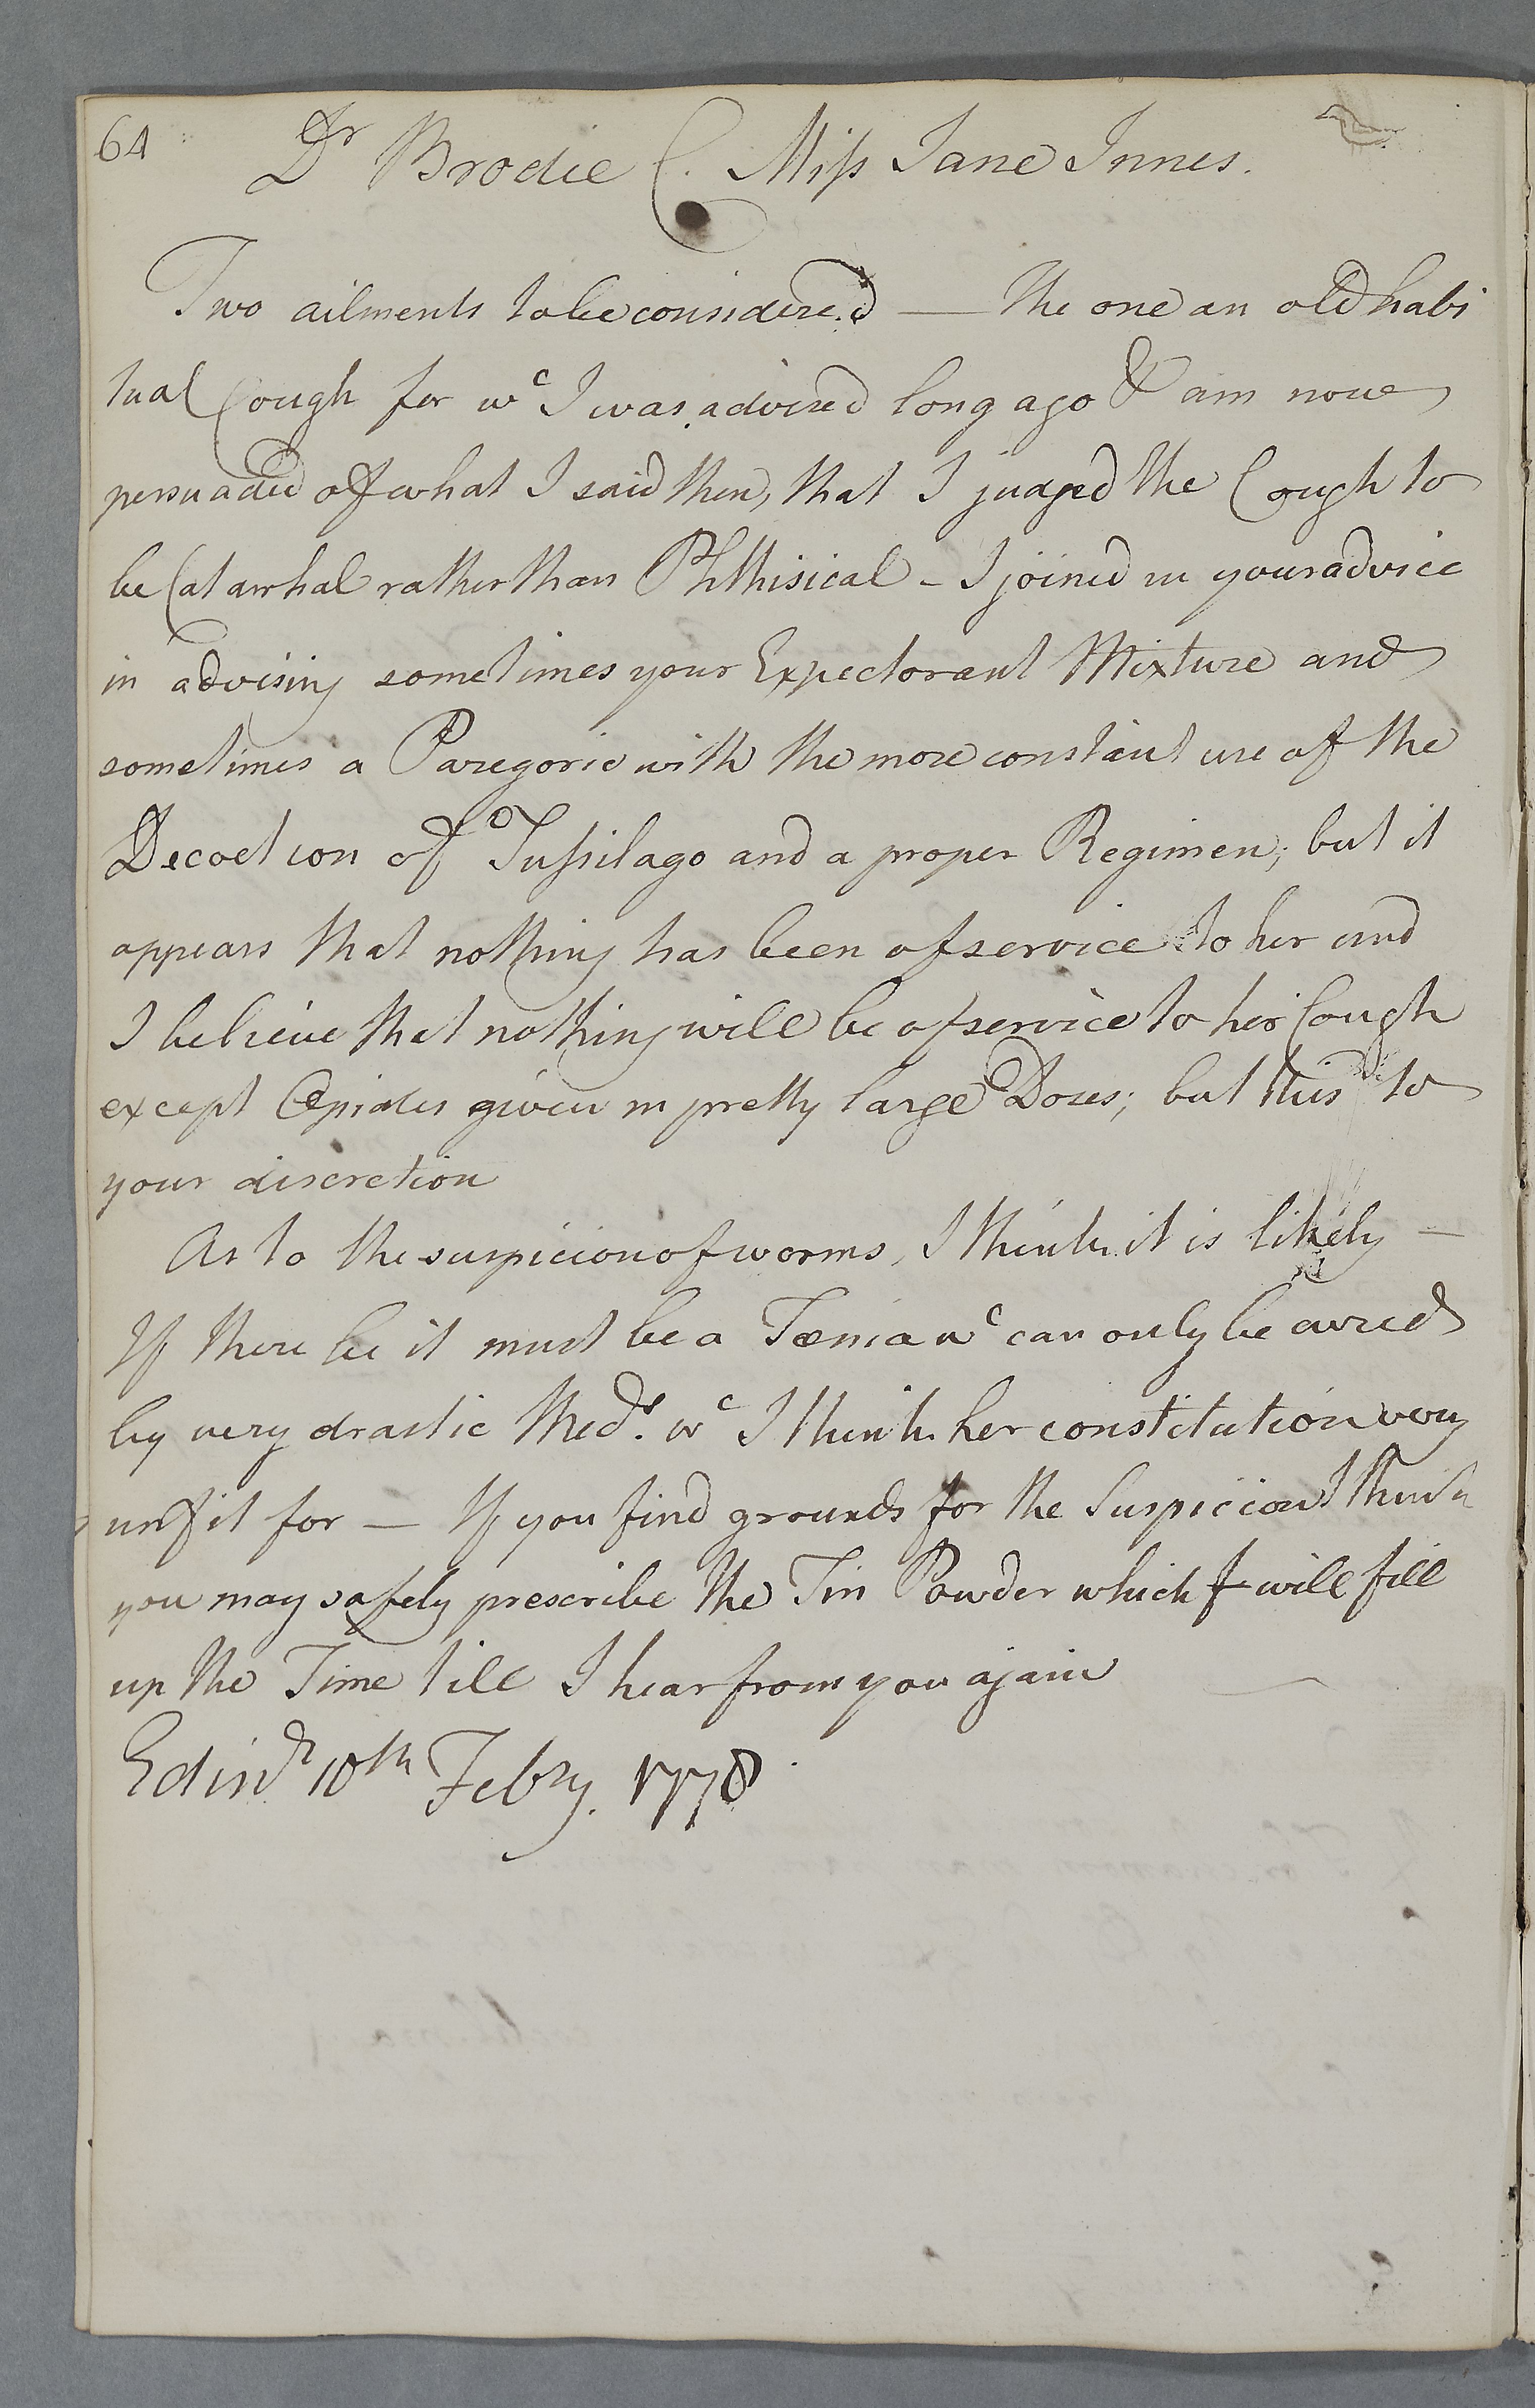 64
Dr Brodie C. Miss Jane Innes.
Two ailments to be considered — The one an old habi
tual Cough for wc I was advised long ago & am now
persuaded of what I said then, that I judged the Cough to
be Catarrhal rather than Phthisical - I joined in your advice
in advising sometimes your Expectorant Mixture and
sometimes a Paregoric with the more constant use of the
Decoction of Tussilago and a proper Regimen; but it
appears that nothing has been of service to her and
I believe that nothing will be of service to her Cough
except Opiates given in pretty large Doses; but this to
your discretion
As to the suspicion of worms, I think it is likely —
If there be it must be a Tænia wc can only be cured
by very drastic Meds. wc I think her constitution very
unfit for — If you find grounds for the Suspicion I think
you may safely prescribe the Tin Powder which I will fill
up the Time till I hear from you again
Edinr 10th Febry. 1778.